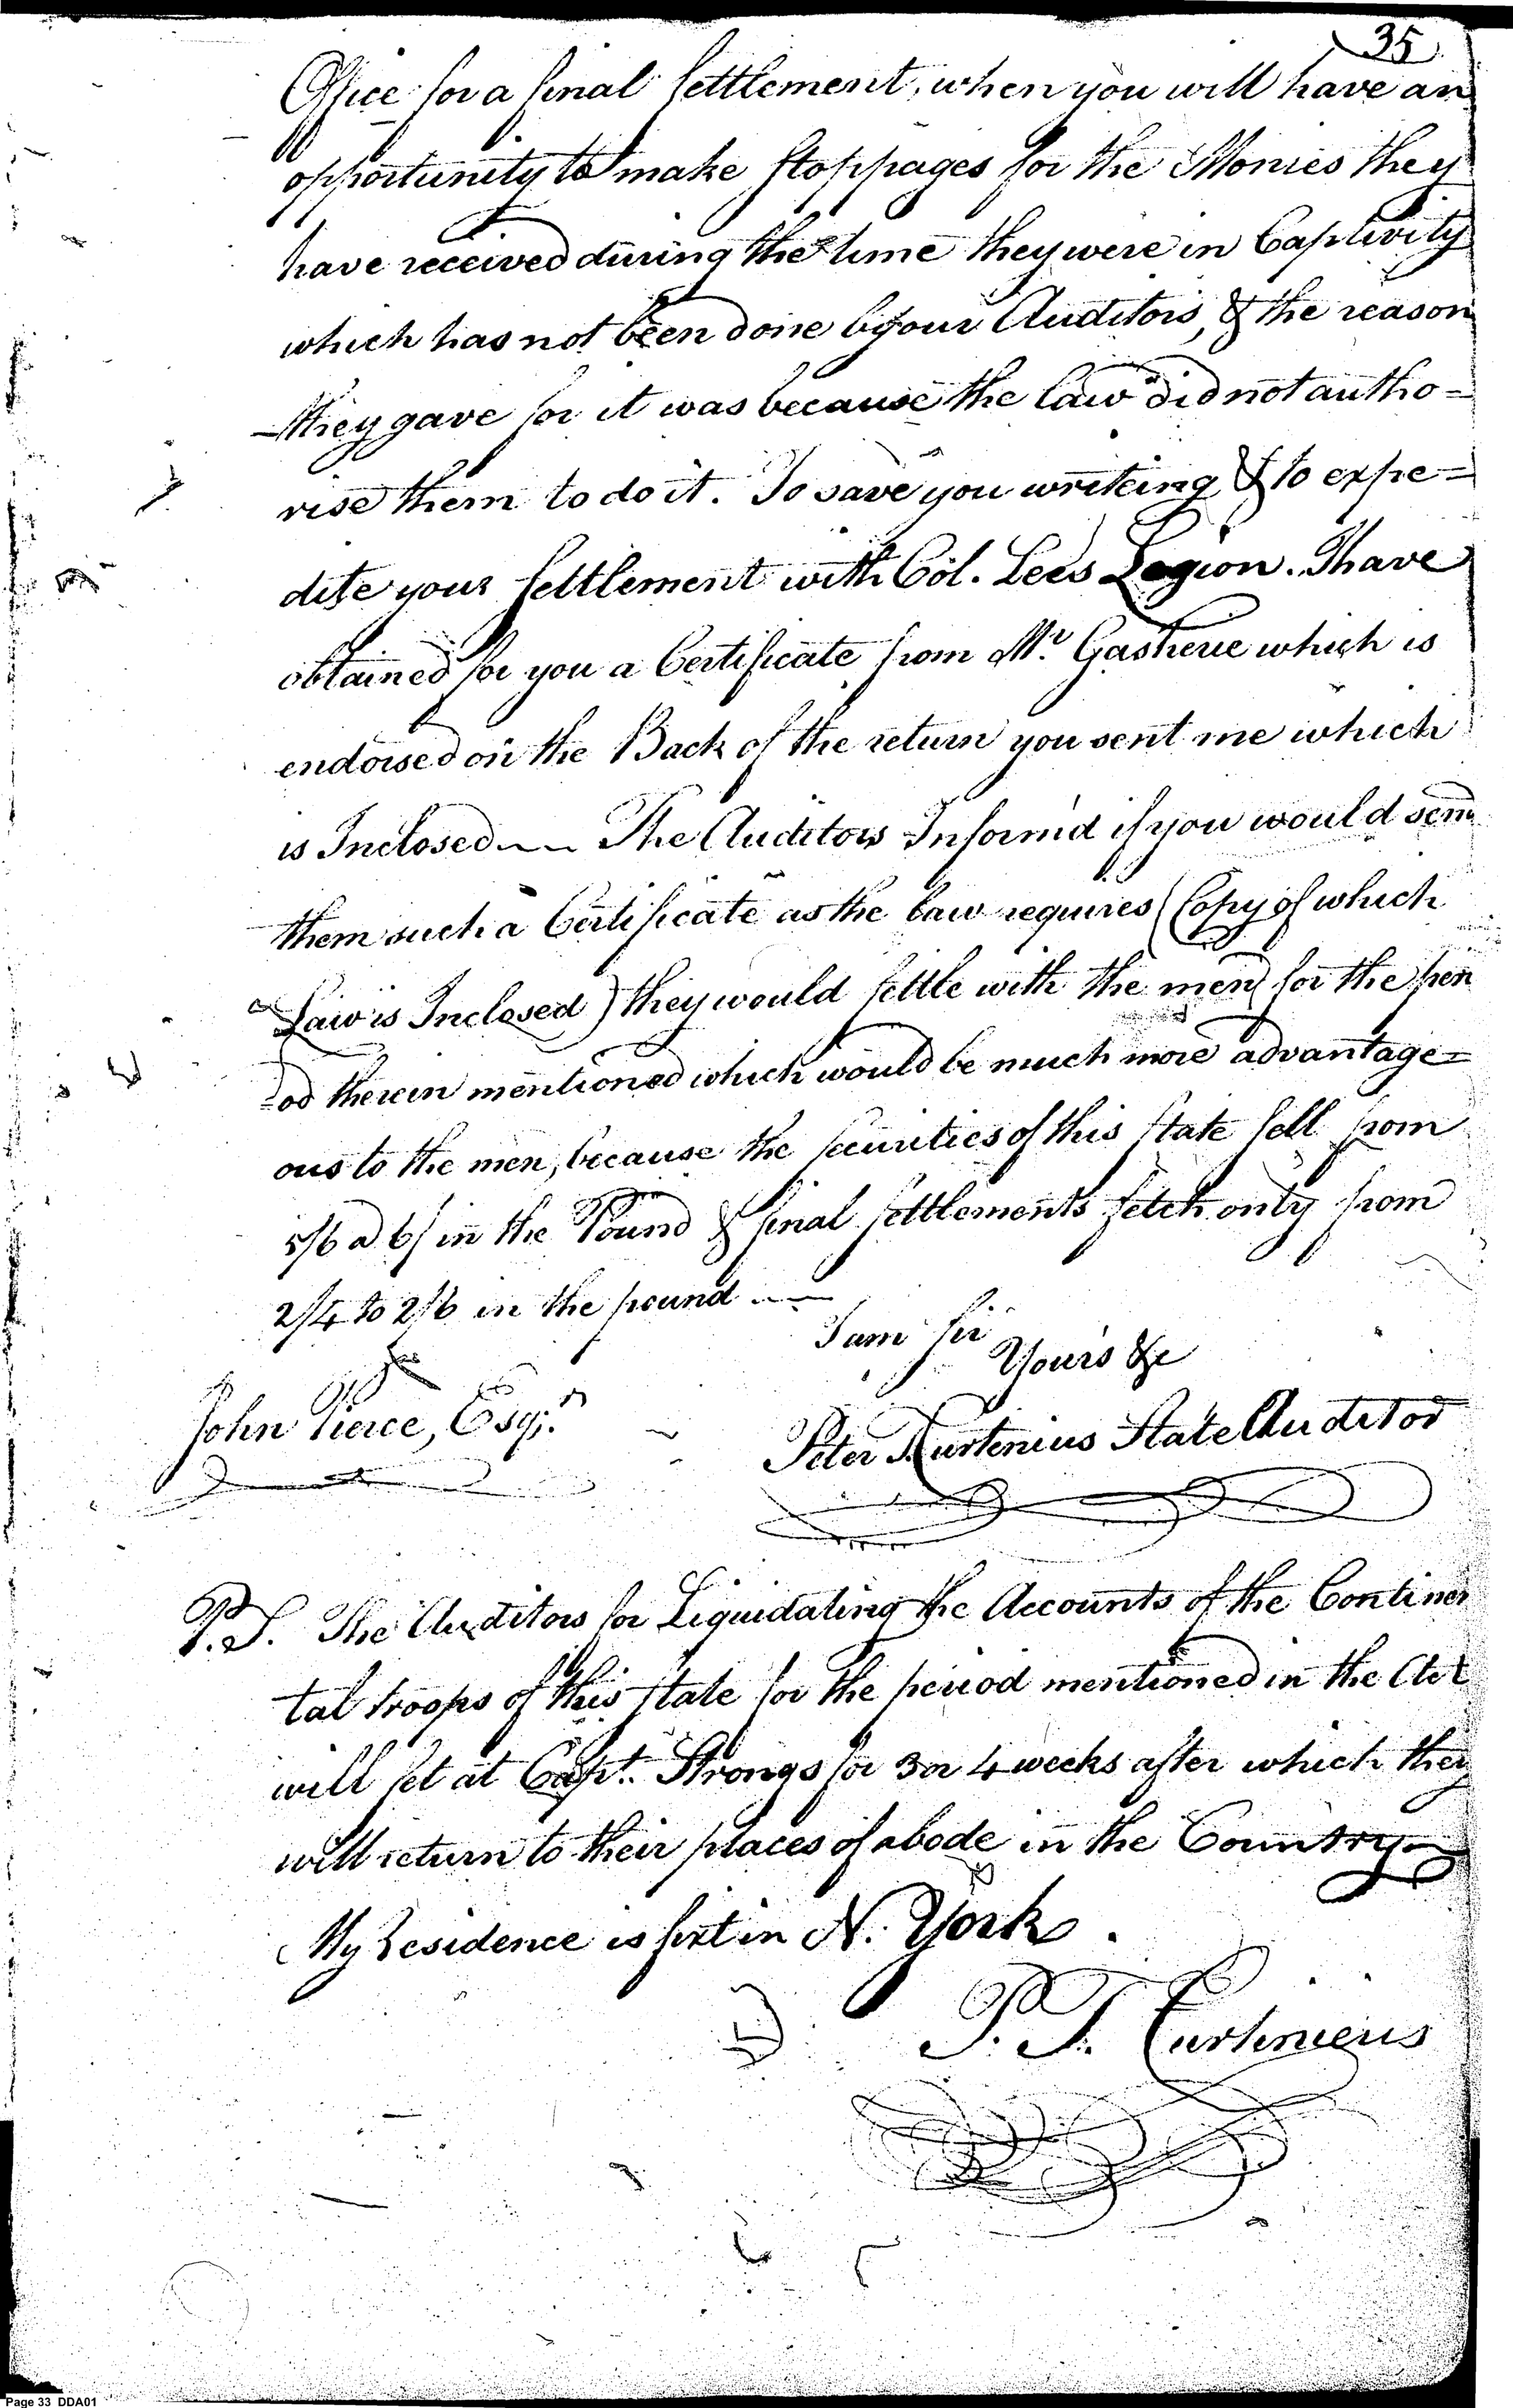 35
Office for a final settlement, when you will have an
opportunity to make stoppages for the Monies they
have received during the time they were in Captivity
which has not been done by our Auditors, & the reason
they gave for it was because the law did not autho=
rise them to do it. To save you writeing & to expe=
dite your settlement with Col. Lees Legion. I have
obtained for you a Certificate from Mr. Gasherie which is
endorsed on the Back of the return you sent me which
is Inclosed — The Auditors Inform'd if you would send
them such a Certificate as the law requires (Copy of which
Law is Inclosed) they would settle with the men for the peri
=od therein mentioned which would be much more advantage=
ous to the men, because the securities of this state sell from
5/6 a 6/ in the Pound & final settlements fetch only from
2/4 to 2/6 in the pound —
I am Sir
Yours &c
John Pierce, Esqr.
Peter T. Curtenius State Auditor
P.S. The Auditors for Liquidating the Accounts of the Continen
tal troops of this state for the period mentioned in the Act
will set at Capt. Strongs for 3 or 4 weeks after which they
will return to their places of abode in the Country
My Residence is fixt in N. York.
P. T. Curtenieus
Page 33 DDA01